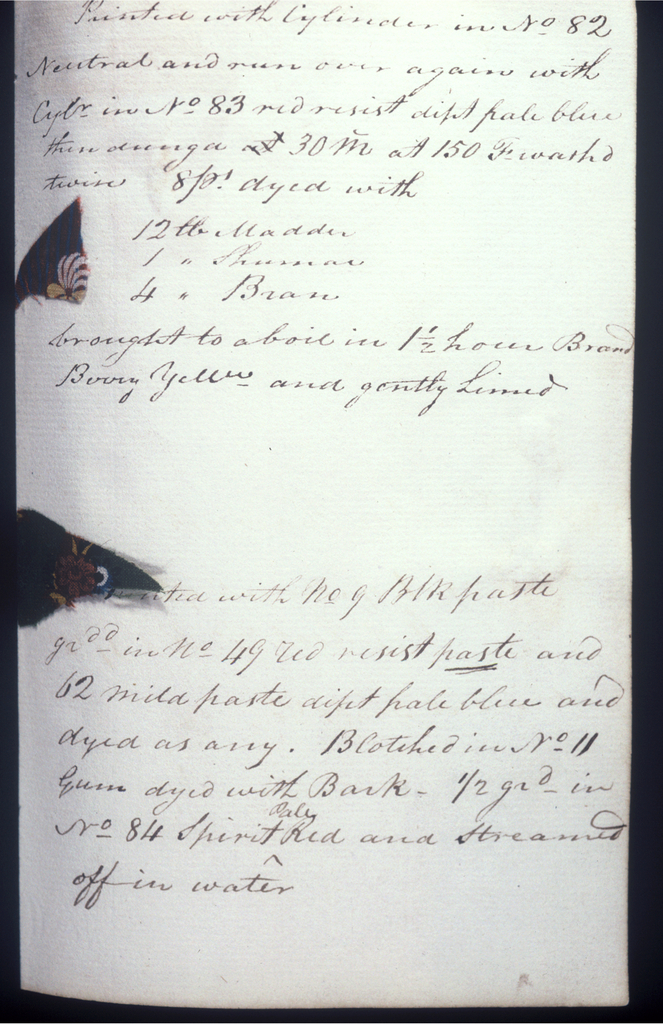 Printed with Cylinder in No 82
Neutral and run over again with
Cylr in No 83 red resist dipt pale blue
then dunga at 30 M at 150 F washd
twice 8 ps dyed with
12 lb Madder
1 " Shumac
4 " Bran
brought to a boil in 1½ hour Brand
Berry Yellw and gently Limed
with No 9 Blk paste
grdd in No 49 red resist paste and
62 mild paste dipt pale blue and
dyed as any. Blotched in No 11
Gum dyed with Bark - 1/2 grd in
No 84 Spirit Pale Red and Streamed
off in water